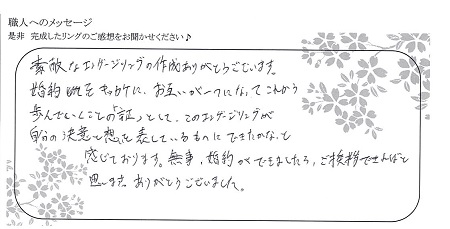 職人へのメッセージ
是非 完成したリングのご感想をお聞かせください♪
素敵なエンゲージリングの作成ありがとうございます。
婚約をキッカケに、お互いが一つになってこれから
歩んでいくことの「証」として、このエンゲージリングが
自分の決意と想いを表しているものにできたかな、と
感じております。無事、婚約ができましたら、ご挨拶できればと
思います。ありがとうございました。